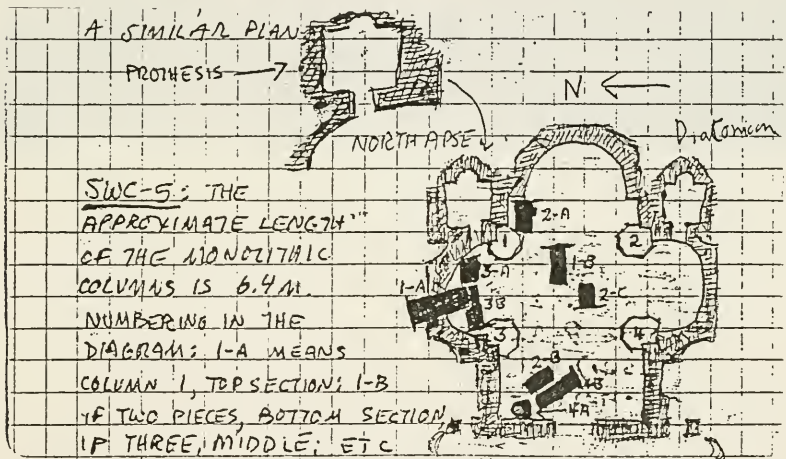 A SIMILAR PLAN
PROTHESIS
NORTH APSE
N
SWC-5: THE
APPROXIMATE LENGTH
OF THE MONOLITHIC
COLUMNS IS 6.4 M.
NUMBERING IN THE
DIAGRAM: 1-A MEANS
COLUMN 1, TOP SECTION; 1-B
IF TWO PIECES, BOTTOM SECTION
IF THREE, MIDDLE; ETC
2-A
1
2
3-A
1-B
1-A
3B
2-C
3
4
2-B
4B
4A